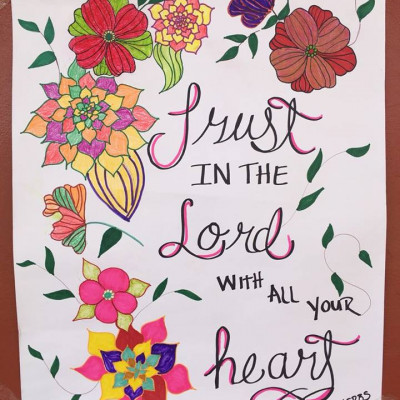 Trust
IN THE
Lord
WITH ALL YOUR
heart